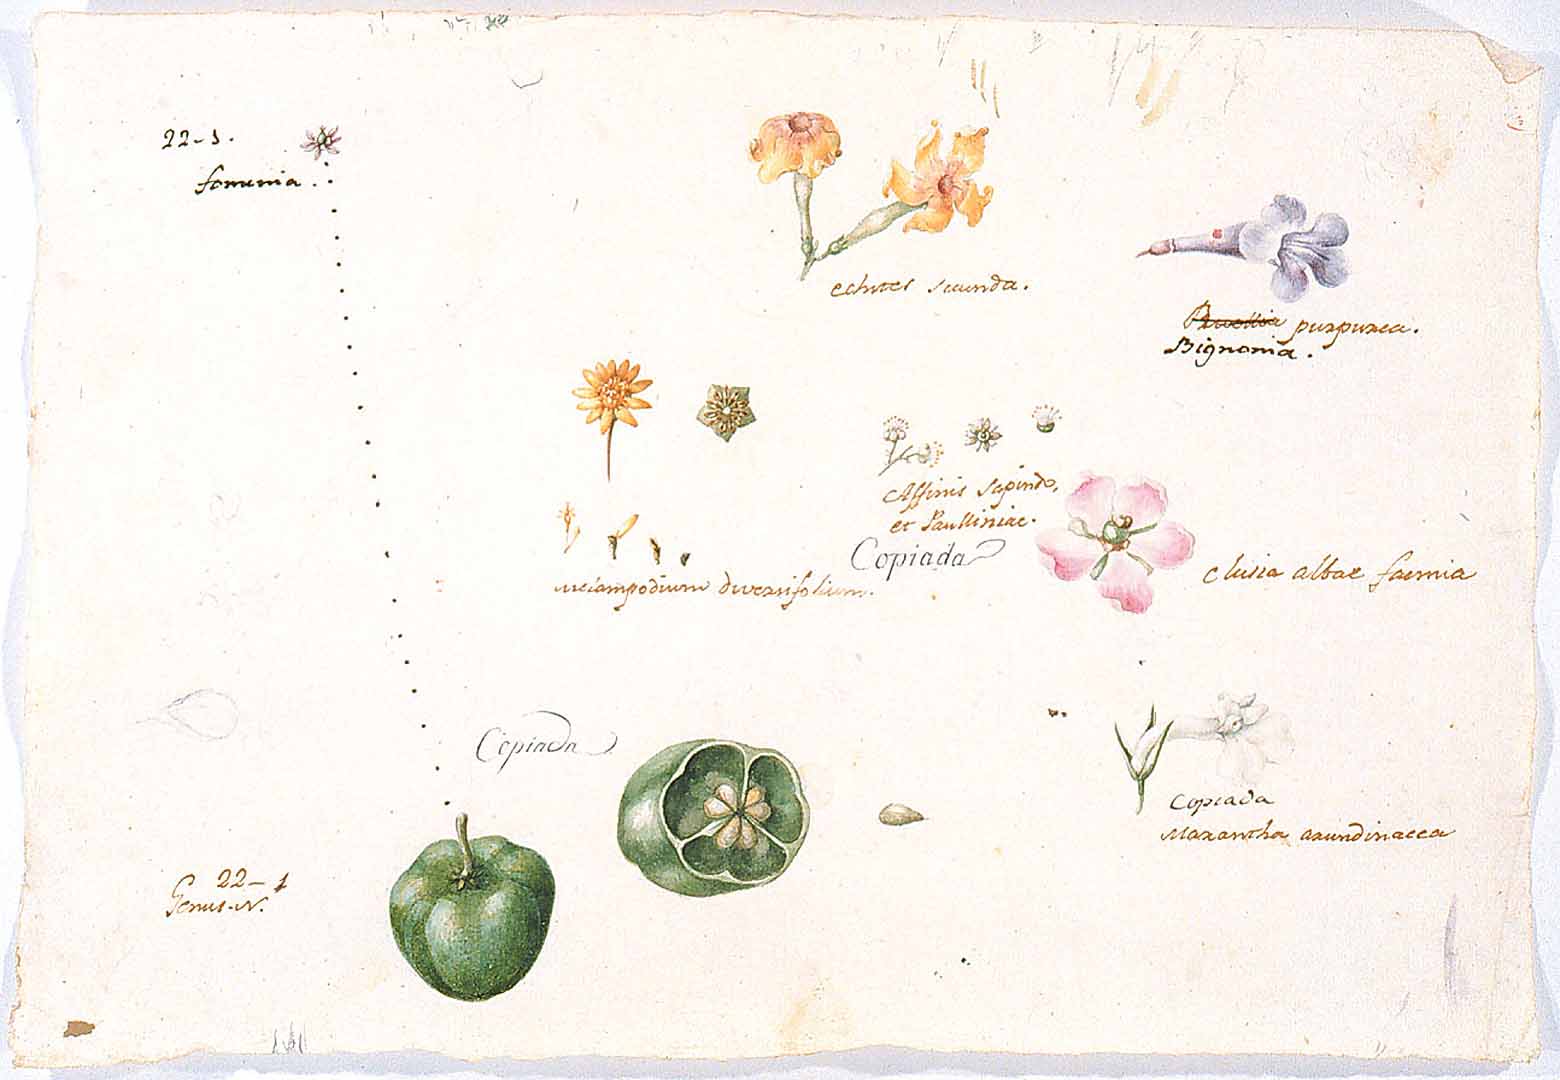 22-1.
foemina.
echites secunda.
Ruellia purpurea.
Bignonia.
Affinis Sapindo,
et Paulliniae.
Copiada
clusia albae faemia
Melampodium diversifolium.
Copiada
Copiada
Maxantha arundinacea
22-1
Genus. N.